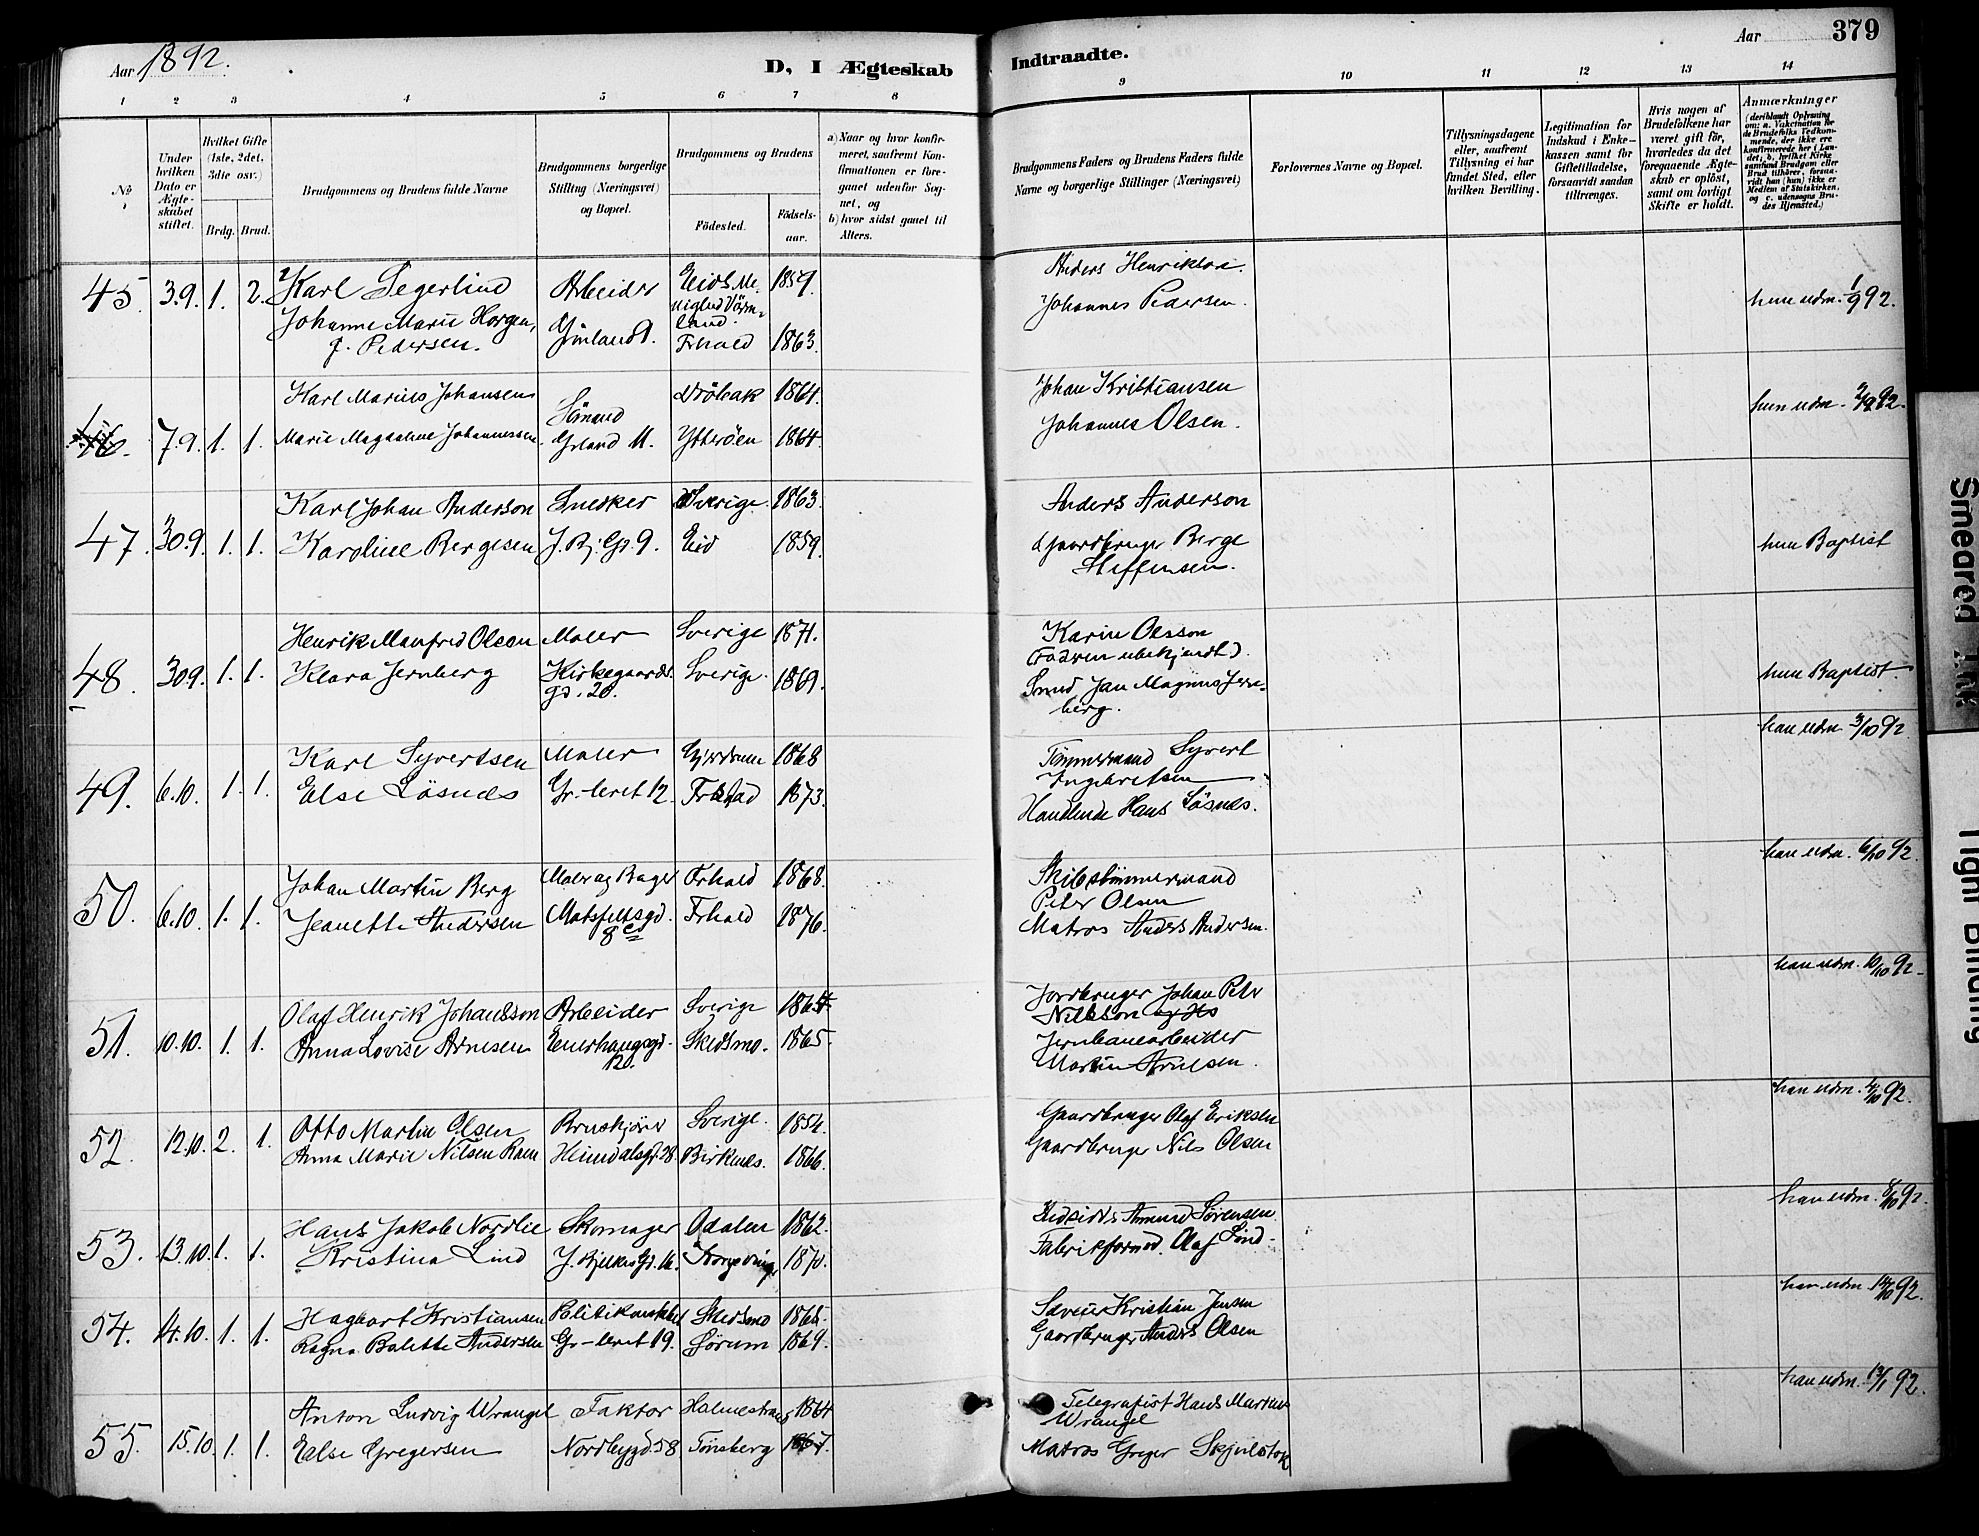 Aar 1892.
D, I Ægteskab
Indtraadte.
Aar
379
1 2 3 4 5 6 7 8 9 10 11 12 13 14
No
Under hvilken Dato er Ægteskabet stiftet.
Hvilket Gifte (1ste, 2det, 3die osv.)
Brdg. Brud.
Brudgommens og Brudens fulde Navne
Brudgommens borgerlige Stilling (Næringsvei) og Bopæl.
Brudgommens og Brudens
Fødested.
Fødselsaar.
a) Naar og hvor konfirmeret, saafremt Konfirmationen er foregaaet udenfor Sognet, og
b) hvor sidst gaaet til Alters.
Brudgommens Faders og Brudens Faders fulde Navne og borgerlige Stillinger (Næringsvei)
Forlovernes Navne og Bopæl.
Tillysningsdagene eller, saafremt Tillysning ei har fundet Sted, efter hvilken Bevilling.
Legitimation for Indskud i Enkekassen samt for Giftetilladelse, forsaavidt saadan tiltrænges.
Hvis nogen af Brudefolkene har været gift før, hvorledes da det foregaaende Ægteskab er opløst, samt om lovligt Skifte er holdt.
Anmærkninger (deriblandt Oplysning om: a. Vakcination for de Brudefolks Vedkommende, der ikke ere konfirmerede her i Landet; b. hvilket Kirkesamfund Brudgom eller Brud tilhører, forsaavidt han (hun) ikke er Medlem af Statskirken, og c. udensogns Brudes Hjemsted.)
45 3.9. 1. 2. Karl Segerlind Arbeider 1859. Anders Henrikson.
Johanne Marie Horgen, f. Pedersen. Grönland Frhald 1863. Johannes Pedersen. hun udm. 1/9 92.
46. 7.9. 1. 1. Karl Marius Johansen Sömand Dröbak 1864. Johan Kristiansen
Marie Magdalene Johannessen Grland 11. Ytterøen 1864. Johannes Olsen. hun udm. 92.
47. 30.9. 1. 1. Karl Johan Anderson Snedker Sverige 1863. Anders Anderson
Karoline Bergesen J. Bj. Gd. 9. Eid 1859. Gaardbruger Berge Steffensen. hun Baptist
48. 30.9. 1. 1. Henrik Manfred Olsson Maler Sverige 1871. Karin Olsson (Faderen ubekjendt).
Klara Jernberg Kirkegaardsgd. 20. Sverige 1869. Smed Jan Magnus Jernberg. hun Baptist.
49. 6.10. 1. 1. Karl Syvertsen Maler Gjerdrum 1868 Tömmermand Syvert Ingebretsen
Else Løsnæs Gr-leret 12. Frstad 1873. Handlende Hans Løsnæs. han udm. 3/10 92
50. 6.10. 1. 1. Johan Martin Berg Maler og Bager Frhald 1868. Skibstömmermand Peter Olsen
Jeanette Andersen 8c Frhald 1876. Matros Anders Andersen. han udm. 6/10 92.
51. 10.10. 1. 1. Olaf Henrik Johansson Arbeider Sverige Jordbruger Johan Peter Nilsson
Anna Lovise Arnesen Enerhaugsgd. 120. Skedsmo. 1865. Jernbanearbeider Martin Arnesen. han udm. 10/10 92
52. 12.10. 2. 1. Otto Martin Olsen Bruskjörer Sverige. 1854. Gaardbruger Olaf Eriksen
Anna Marie Nilsen Ram Heimdalsgd. 28. Birkenæs. 1866. Gaardbruger Nils Olsen han udm. 92.
53. 13.10. 1. 1. Hans Jakob Nordlie Skomager Odalen 1862. Sørensen
Kristina Lind 1870. Fabrikformd. Olaf Lind. han udm. 8/10 92.
54. 14.10. 1. 1. Hagbart Kristiansen Politikonstabel Skedsmo 1865. Kristian Jensen
Ragna Balette Andersen Gr-leret 19. Sørum 1869. Gaardbruger Anders Olsen han udm. 92.
55. 15.10. 1. 1. Anton Ludvig Wrangel Faktor Holmestrand 1864 Telegrafist Hans Martin Wrangel
Else Gregersen Nordbygd. 58. Tønsberg 1867. Matros Greger Skjelstok han udm. 92.
Smeared Ink
Tight Binding